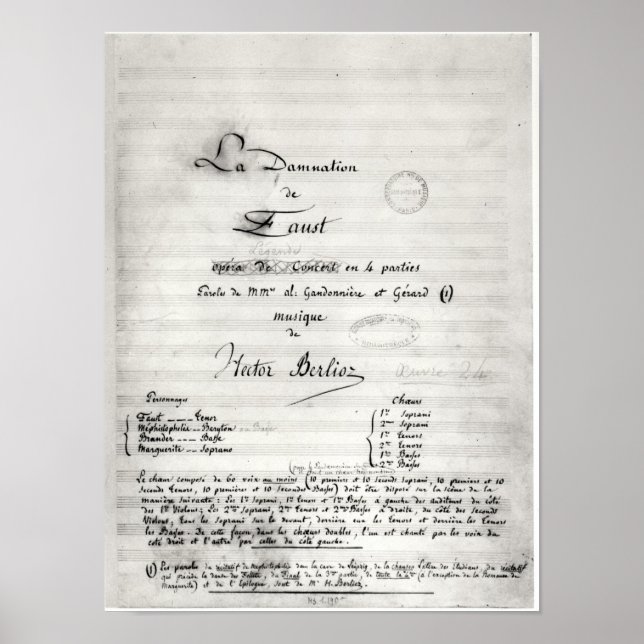 La Damnation
de
Faust
Légende
opéra de Concert en 4 parties
Paroles de MMrs al: Gandonnière et Gérard (1)
musique
de
Hector Berlioz
Œuvre 24
Personnages
Faust ---- Tenor
Méphistophélès -- Baryton ou Basse
Brander ---- Basse
Marguerite --- Soprano
Chœurs
1ers Soprani
2mes Soprani
1ers Tenors
2mes Tenors
1res Basses
2mes Basses
Le chœur composé de 60 voix au moins (10 premiers et 10 seconds Soprani, 10 premiers et 10
Seconds Tenors, 10 premieres et 10 secondes Basses) doit être disposé sur la scène de la
manière suivante: Les 1ers Soprani, 1ers Tenors et 1res Basses à gauche des auditeurs du côté
des 1ers Violons; Les 2mes Soprani, 2mes Tenors et 2mes Basses à droite, du côté des seconds
Violons, tous les Soprani sur le devant, derrière eux les Tenors et derrière les Tenors
les Basses. De cette façon, dans les chœurs doubles, l'un est chanté par les voix du
côté droit et l'autre par celles du côté gauche.
(1) Les paroles du récitatif de Méphistophélès dans la cave de Leipzig, de la chanson latine des Etudians, du récitatif
qui précède la danse des Follets, du Final de la 3me partie, de toute la 4me (à l'exception de la Romance de
Marguerite) et de l'Epilogue, sont de Mr H. Berlioz.
Ms. 1.190